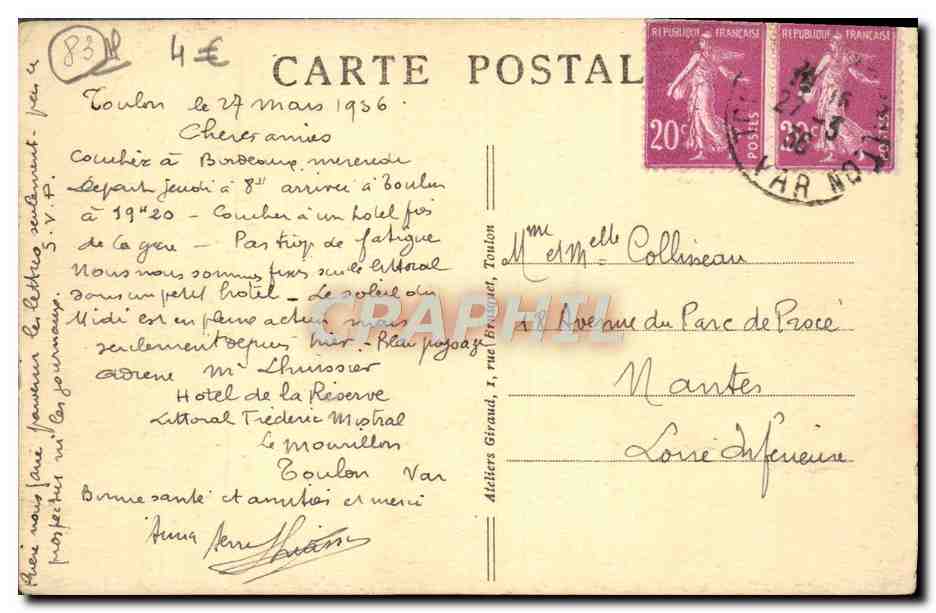 83 4€
CARTE POSTAL
RÉPUBLIQUE FRANÇAISE
20c POSTES
RÉPUBLIQUE FRANÇAISE
20c POSTES
27 -3
36
VAR
Toulon le 27 mars 1936
Cheres amies
Couchée à Bordeaux mercredi
Départ jeudi à 8H arrivée à Toulon
à 19H20 - Coucher à un hotel près
de la gare - Pas trop de fatigue
Nous nous sommes fixés sur le littoral
dans un petit hotel - Le soleil du
Midi est en pleine action mais
seulement depuis hier - Beau paysage
adresse Mr Lhuissier
Hotel de la Réserve
Littoral Frédéric Mistral
Le Mourillon
Toulon Var
Bonne santé et amitiés et merci
Anna
Prière nous faire parvenir les lettres seulement - pas de
prospectus ni les journaux. S.V.P.
Ateliers Giraud, 1, rue Toulon
Mme et Melle Collineau
18 Avenue du Parc de Procé
Nantes
Loire Inférieure
CPAPHIL